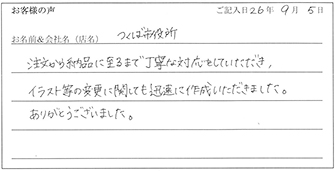 お客様の声 ご記入日 26年 9月 5日
お名前&会社名（店名） つくば市役所
注文から納品に至るまで丁寧な対応をしていただき、
イラスト等の変更に関しても迅速に作成いただきました。
ありがとうございました。